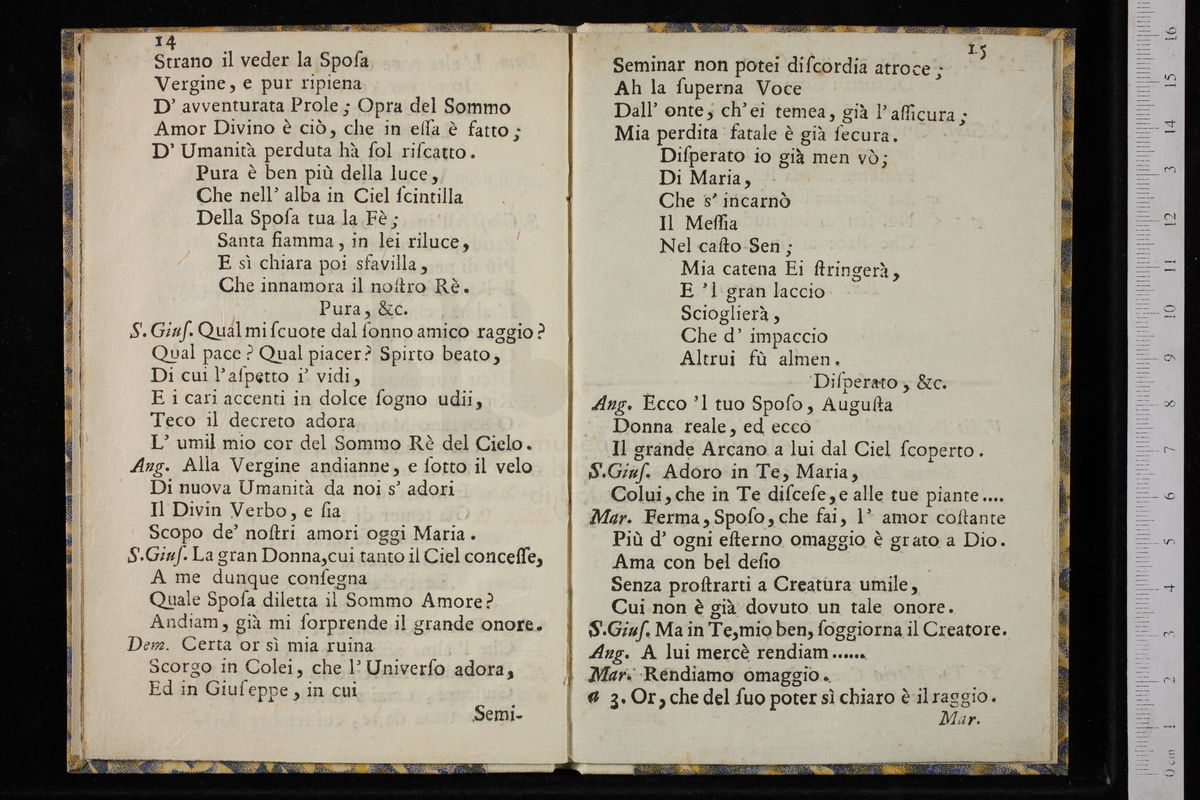 14
Strano il veder la Spoſa
Vergine, e pur ripiena
D' avventurata Prole; Opra del Sommo
Amor Divino è ciò, che in eſſa è fatto;
D' Umanità perduta hà ſol riſcatto.
Pura è ben più della luce,
Che nell' alba in Ciel ſcintilla
Della Spoſa tua la Fè;
Santa fiamma, in lei riluce,
E sì chiara poi sfavilla,
Che innamora il noſtro Rè.
Pura, &c.
S. Giuſ. Qual mi ſcuote dal ſonno amico raggio?
Qual pace? Qual piacer? Spirto beato,
Di cui l'aſpetto i' vidi,
E i cari accenti in dolce ſogno udii,
Teco il decreto adora
L' umil mio cor del Sommo Rè del Cielo.
Ang. Alla Vergine andianne, e ſotto il velo
Di nuova Umanità da noi s' adori
Il Divin Verbo, e ſia
Scopo de' noſtri amori oggi Maria.
S. Giuſ. La gran Donna, cui tanto il Ciel conceſſe,
A me dunque conſegna
Quale Spoſa diletta il Sommo Amore?
Andiam, già mi ſorprende il grande onore.
Dem. Certa or sì mia ruina
Scorgo in Colei, che l'Univerſo adora,
Ed in Giuſeppe, in cui
Semi-
15
Seminar non potei diſcordia atroce;
Ah la ſuperna Voce
Dall' onte, ch'ei temea, già l'aſſicura;
Mia perdita fatale è già ſecura.
Diſperato io già men vò;
Di Maria,
Che s' incarnò
Il Meſſia
Nel caſto Sen;
Mia catena Ei ſtringerà,
E 'l gran laccio
Scioglierà,
Che d' impaccio
Altrui fù almen.
Diſperato, &c.
Ang. Ecco 'l tuo Spoſo, Auguſta
Donna reale, ed ecco
Il grande Arcano a lui dal Ciel ſcoperto.
S. Giuſ. Adoro in Te, Maria,
Colui, che in Te diſceſe, e alle tue piante....
Mar. Ferma, Spoſo, che fai, l' amor coſtante
Più d' ogni eſterno omaggio è grato a Dio.
Ama con bel deſio
Senza proſtrarti a Creatura umile,
Cui non è già dovuto un tale onore.
S. Giuſ. Ma in Te, mio ben, ſoggiorna il Creatore.
Ang. A lui mercè rendiam......
Mar. Rendiamo omaggio.
a 3. Or, che del ſuo poter sì chiaro è il raggio.
Mar.
0 cm 1 2 3 4 5 6 7 8 9 10 11 12 3 14 15 16